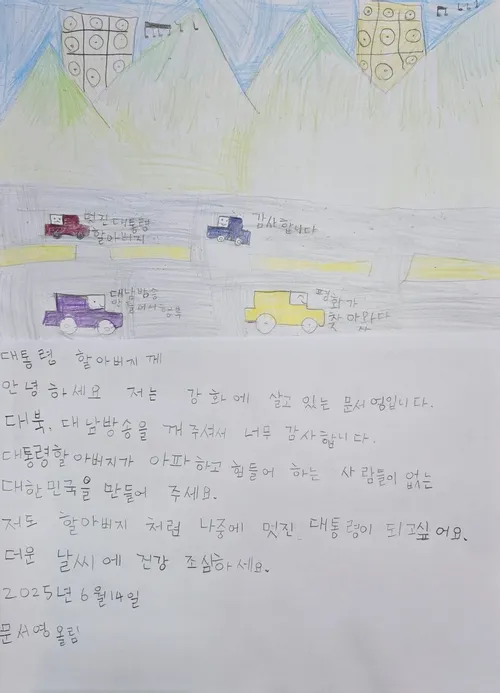 멋진 대통령
할아버지
감사합니다
대남방송
평화가
찾아와다
대통령 할아버지 께
안녕하세요 저는 강화에 살고 있는 문서영입니다.
대북, 대남방송을 꺼주셔서 너무 감사합니다.
대통령할아버지가 아파하고 힘들어 하는 사람들이 없는
대한민국을 만들어 주세요.
저도 할아버지 처럼 나중에 멋진 대통령이 되고싶어요.
더운 날씨에 건강 조심하세요.
2025년 6월 14일
문서영 올림